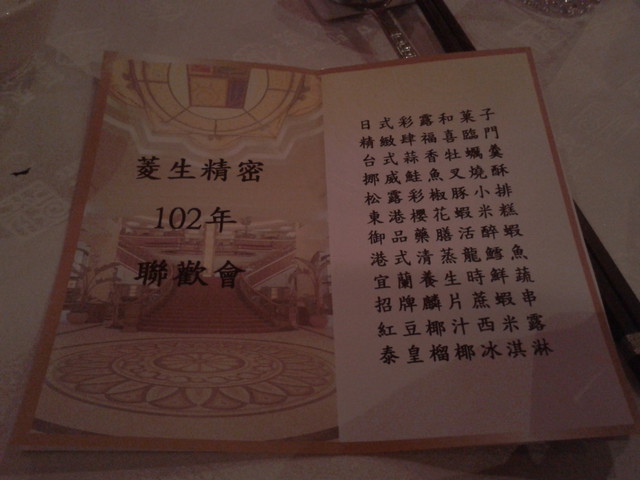 菱生精密
102年
聯歡會
日式彩露和菓子
精緻肆福喜臨門
台式蒜香牡蠣羹
挪威鮭魚叉燒酥
松露彩椒豚小排
東港櫻花蝦米糕
御品藥膳活醉蝦
港式清蒸龍鱈魚
宜蘭養生時鮮蔬
招牌麟片蔗蝦串
紅豆椰汁西米露
泰皇榴椰冰淇淋